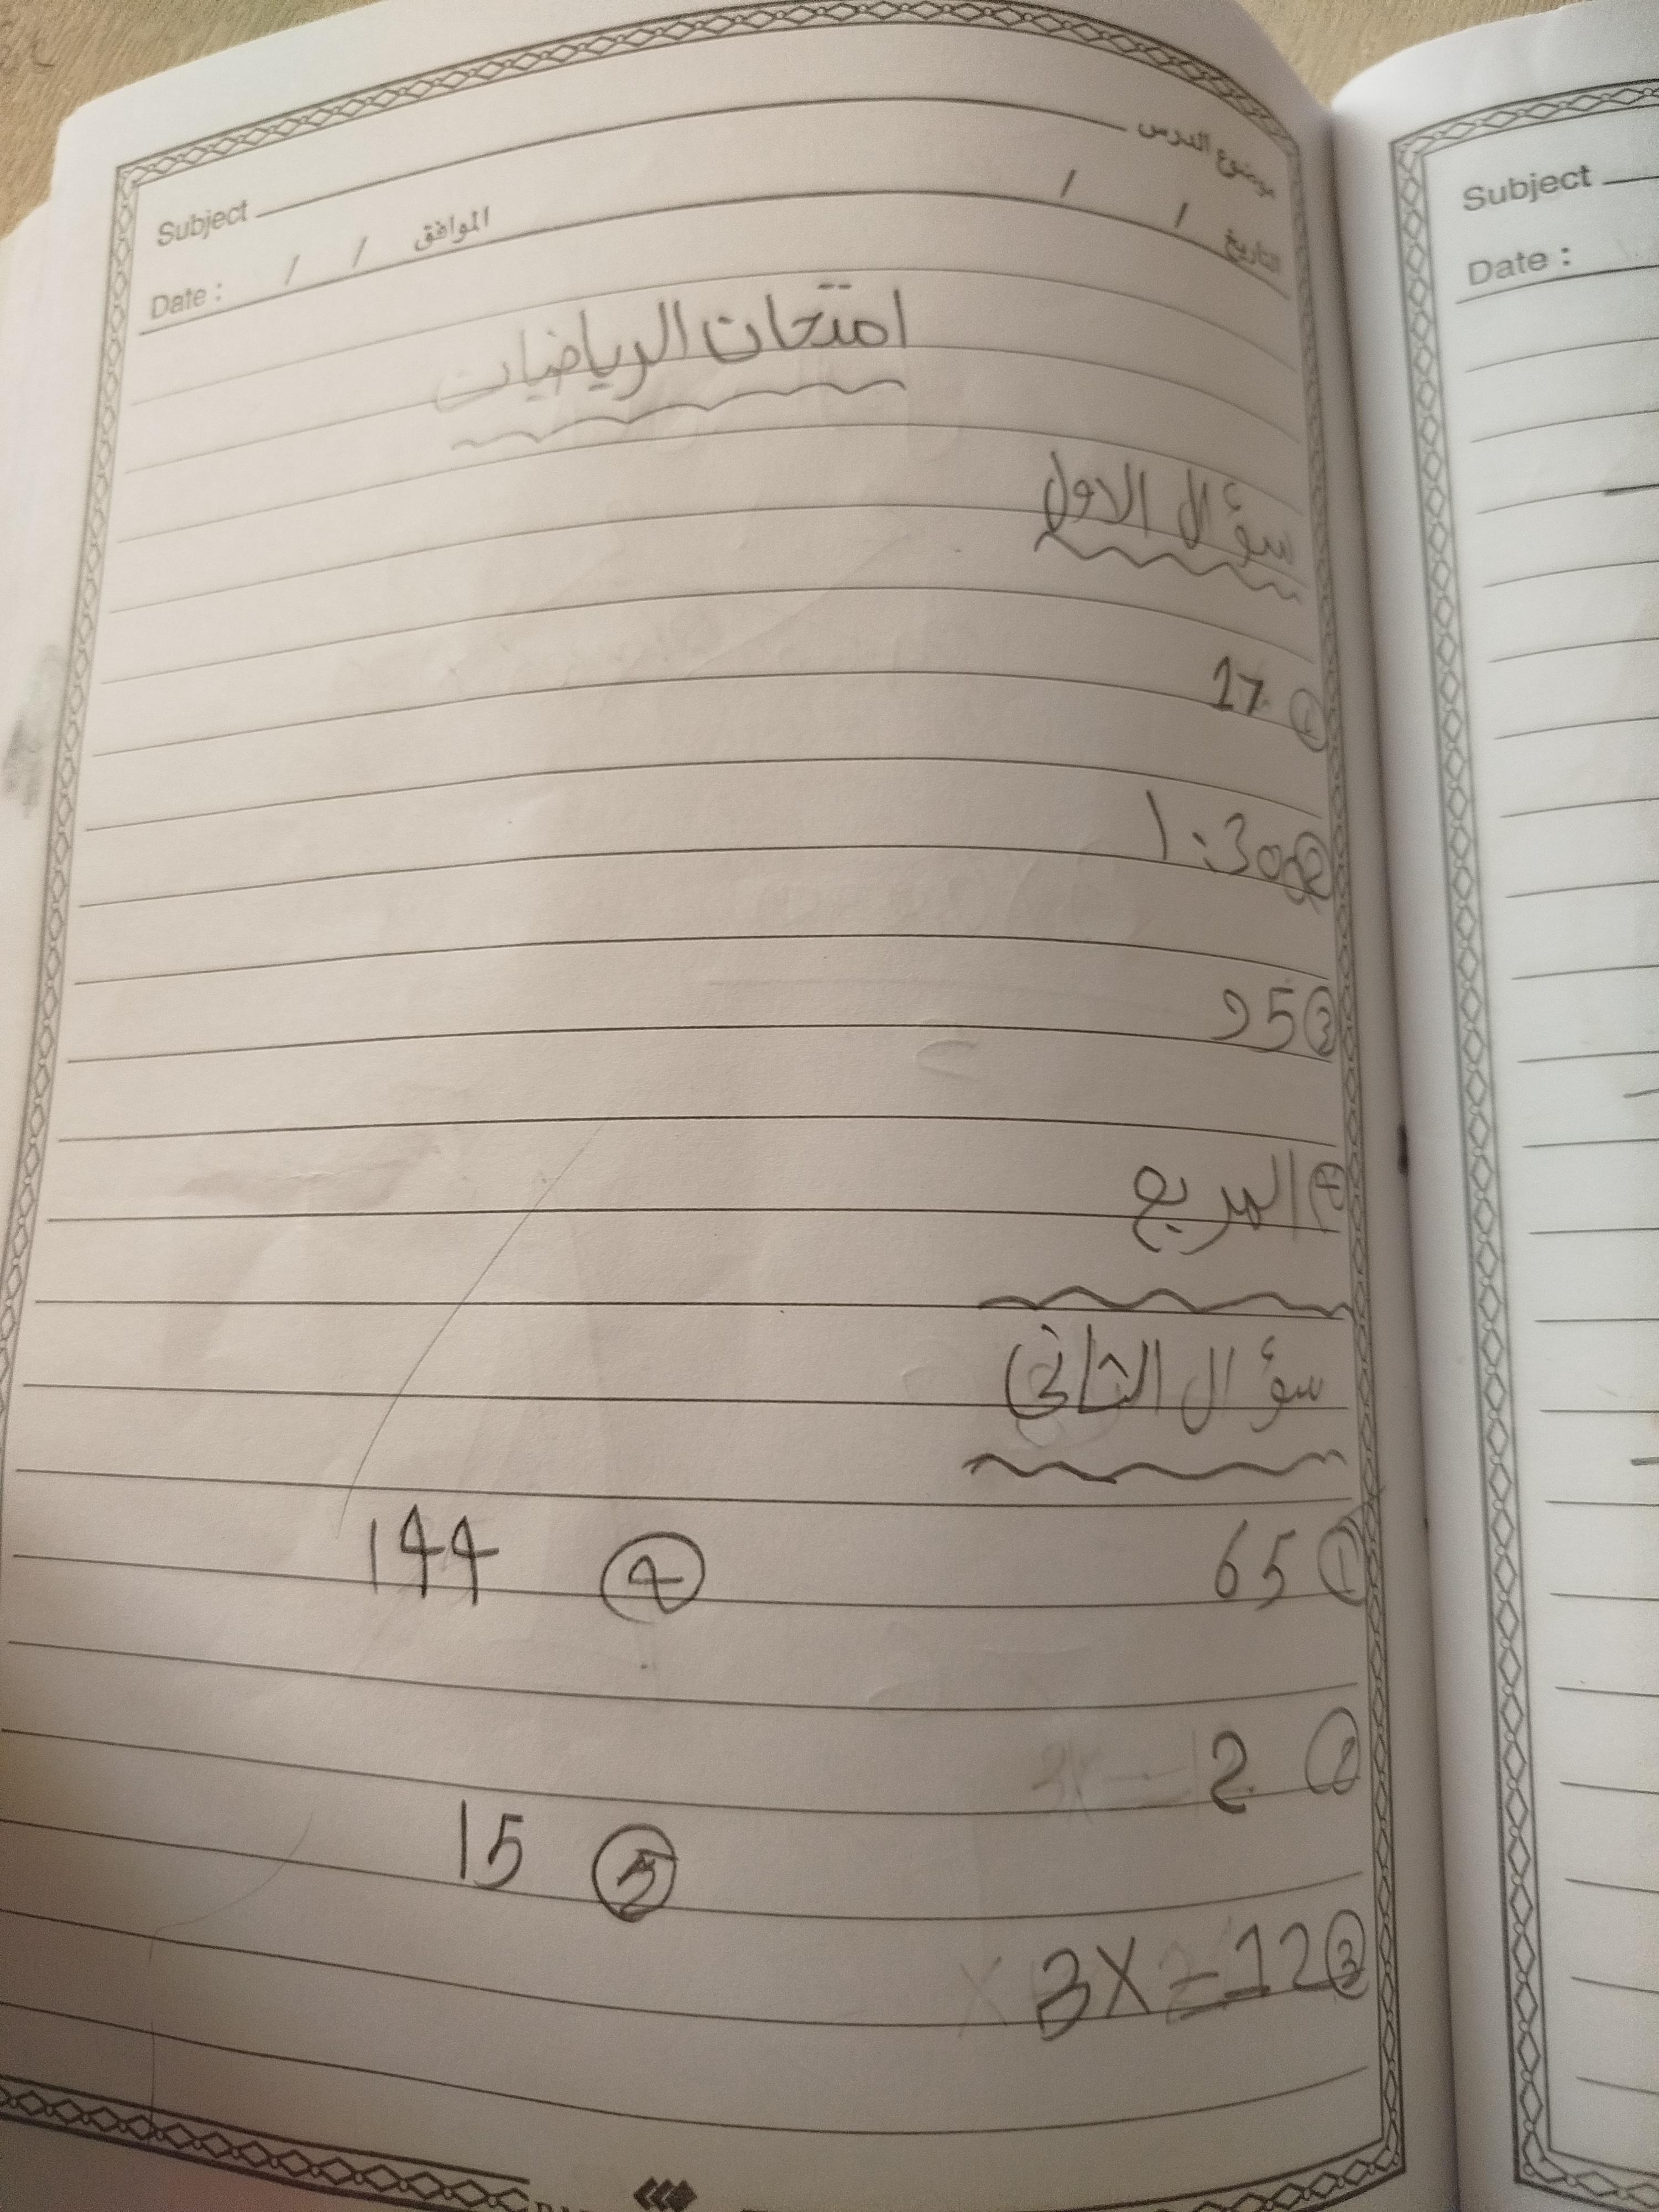 موضوع الدرس Subject
التاريخ / / الموافق / / Date :
امتحان الرياضيات
سؤال الاول
① 17
② 1:30
③ 25
④ المربع
سؤال الثاني
① 65 ④ 144
② 2
⑤ 15
③ 3X = 12
Subject
Date :